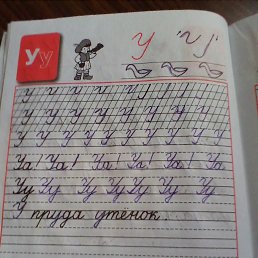 Уу
У
У У У У У У
У У У У У У У
У У У У У У У У У
Уа! Уа! Уа! Уа! Уа! Уа!
Уу Уу Уу Уу Уу Уу Уу
У пруда утёнок.